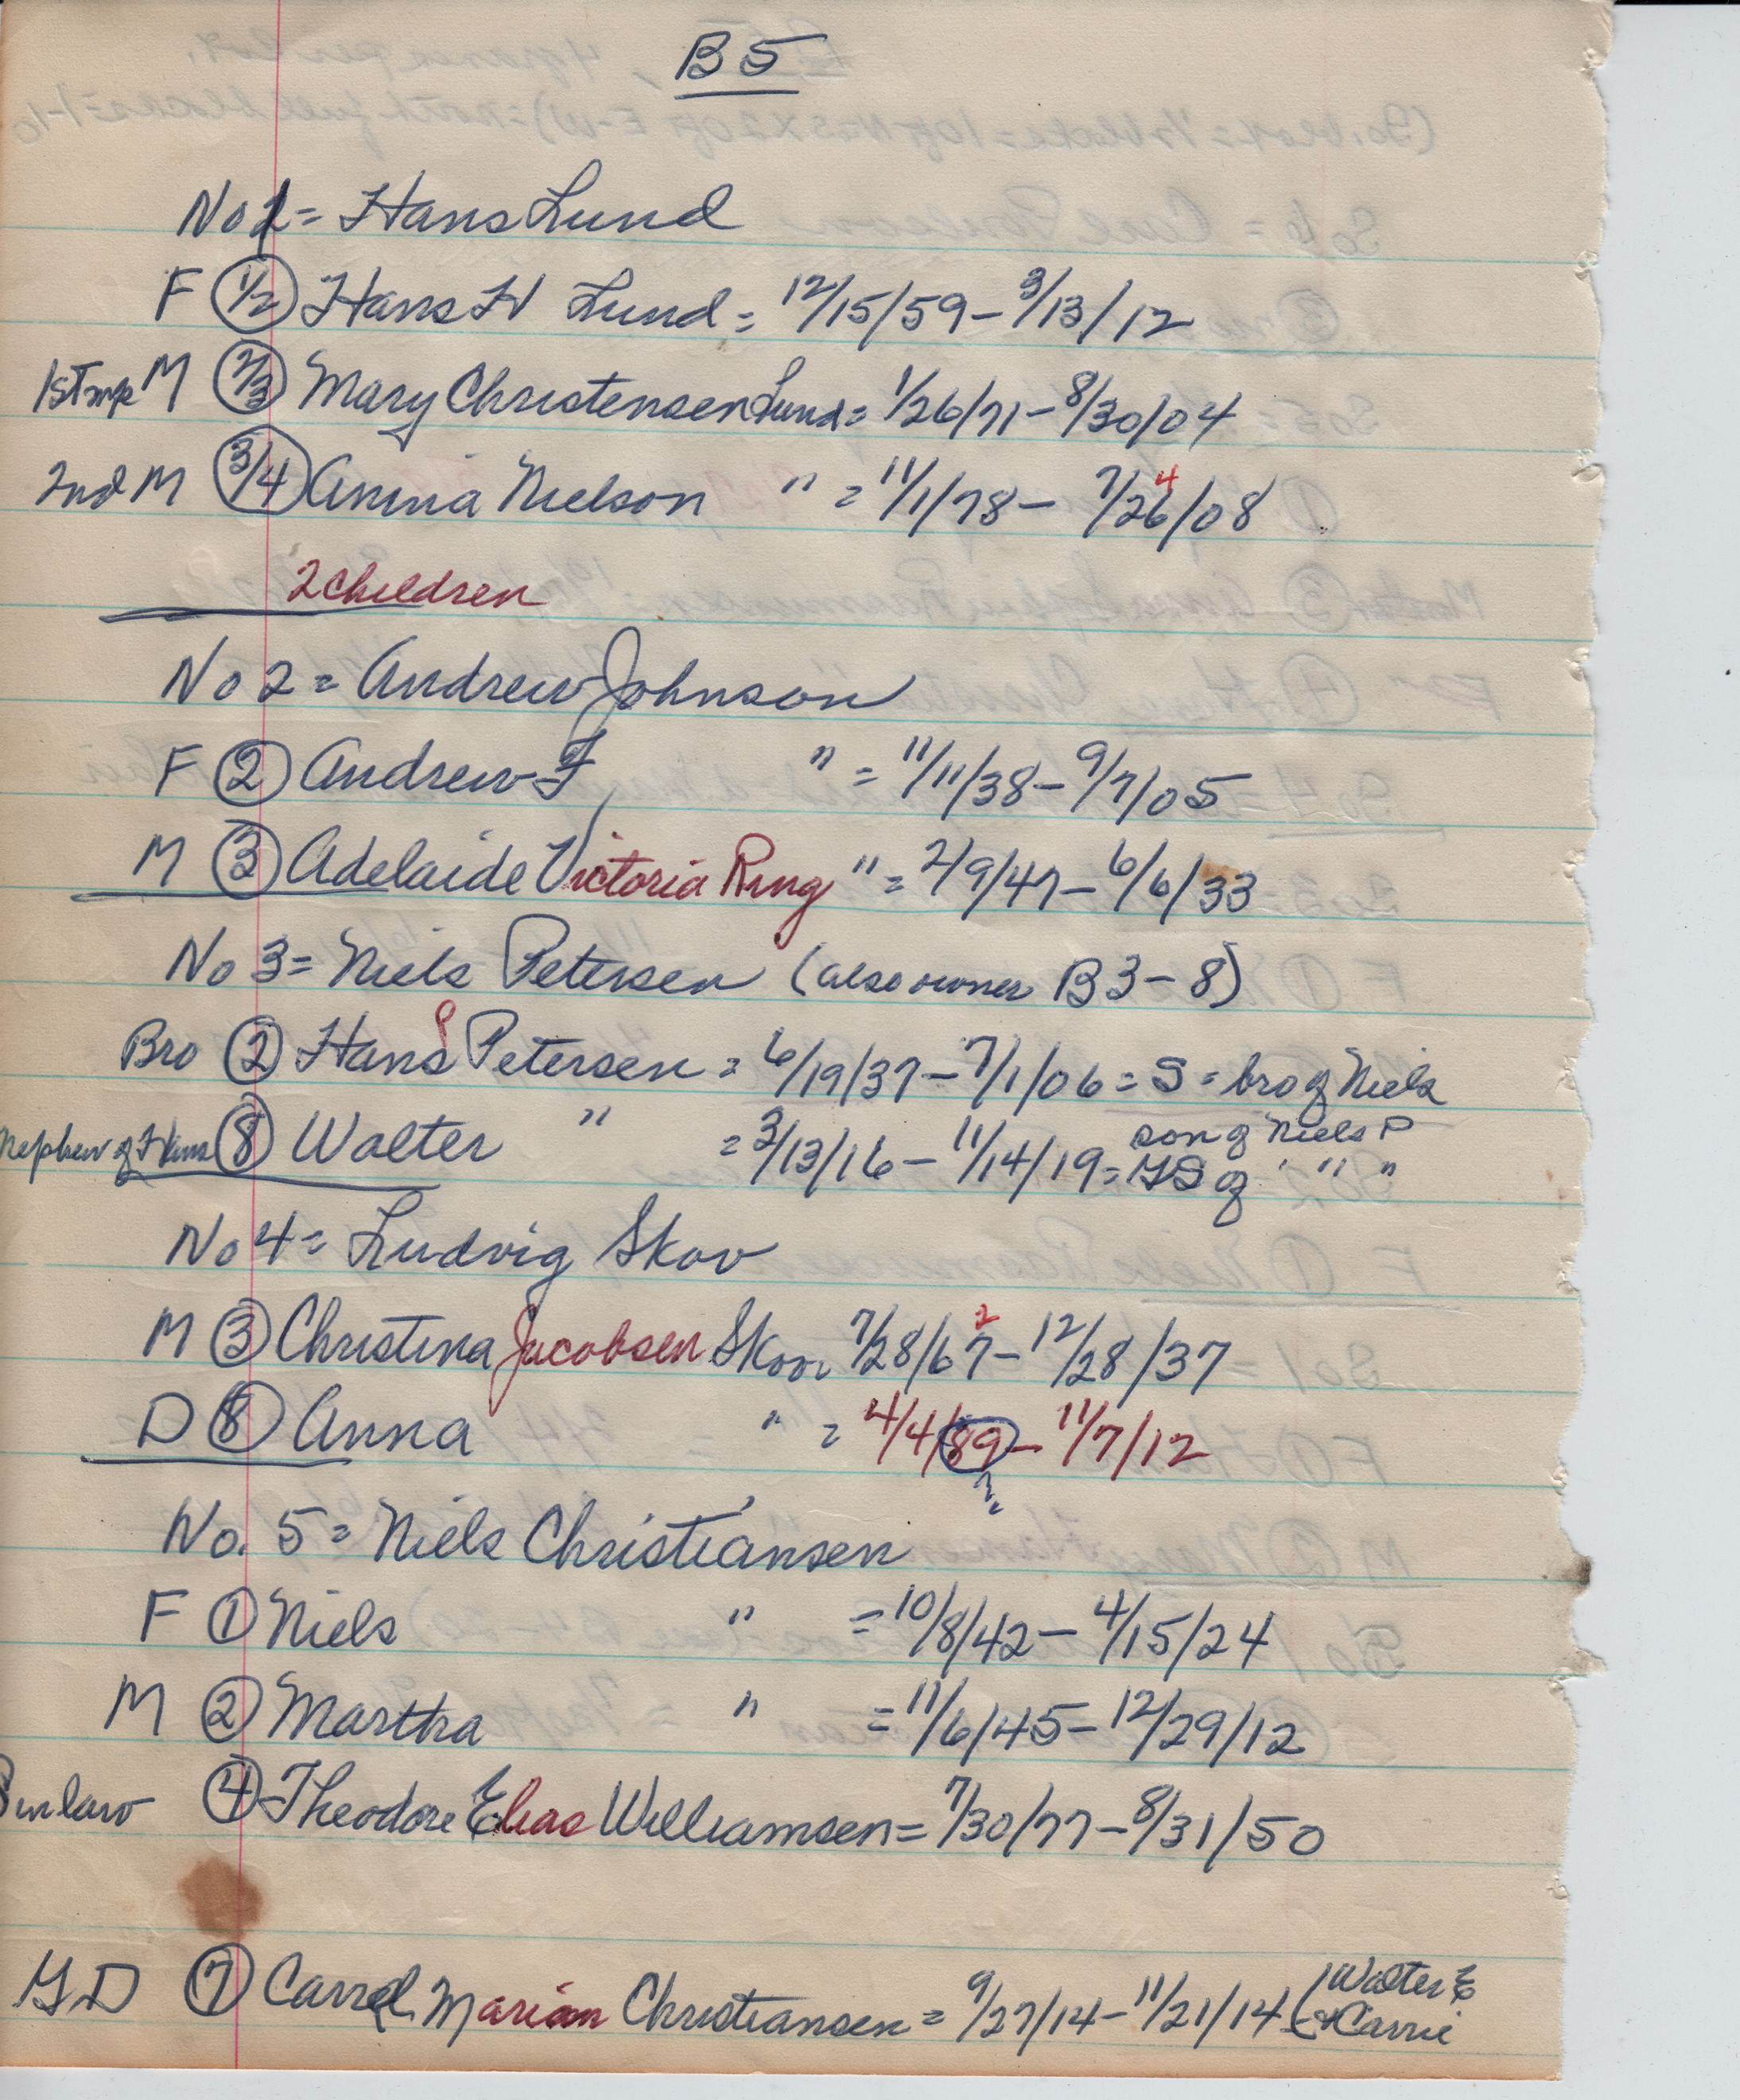 B 5
No 1 = Hans Lund
F 1/2 Hans H Lund = 12/15/59 - 3/13/12
1st M 2/3 Mary Christensen Lund = 1/26/71 - 8/30/04
2nd M 3/4 Anina Nielson " = 11/1/78 - 7/26/08
4
2 children
No 2 = Andrew Johnson
F 2 Andrew F " = 11/11/38 - 9/7/05
M 3 Adelaide Victoria Ring " = 2/9/47 - 6/6/33
No 3 = Niels Petersen (also owner B 3 - 8)
Bro 2 Hans P Petersen = 6/19/37 - 7/1/06 = S = bro of Niels
Nephew of Hans 8 Walter " = 3/13/16 - 11/14/19 = son of Niels P
GS of " " "
No 4 = Ludvig Skov
M 3 Christina Jacobsen Skov 7/28/67 - 12/28/37
2
D 8 Anna " = 4/4/89 - 11/7/12
?
No. 5 = Niels Christiansen
F 1 Niels " = 10/8/42 - 4/15/24
M 2 Martha " = 11/6/45 - 12/29/12
S in law 4 Theodore Elias Williamsen = 7/30/77 - 8/31/50
GD 7 Carrol Marian Christiansen = 9/27/14 - 11/21/14 (Walter E
& Carrie